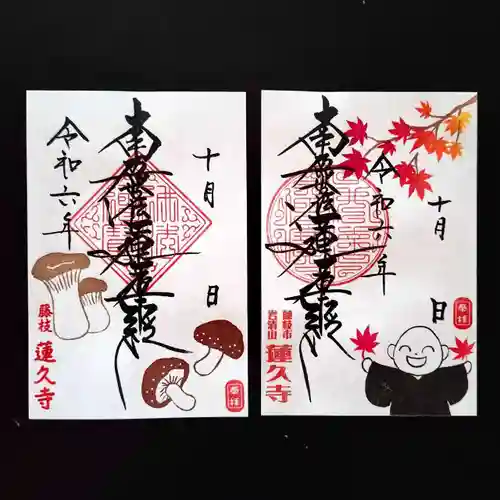 十月 日
南無妙法蓮華経
令和六年
藤枝
蓮久寺
奉拝
十月 日
令和六年
南無妙法蓮華経
藤枝市
岩清山
蓮久寺
奉拝